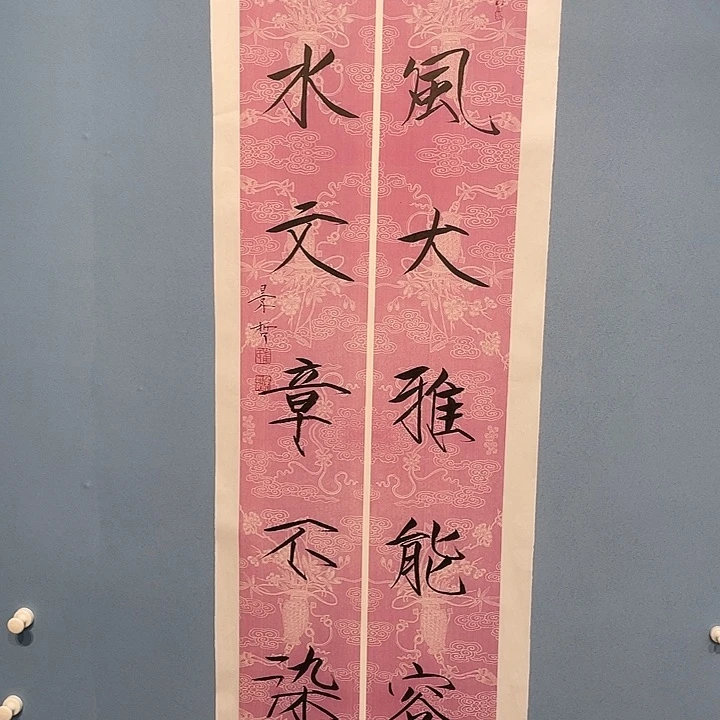 風大雅能容
水文章不染